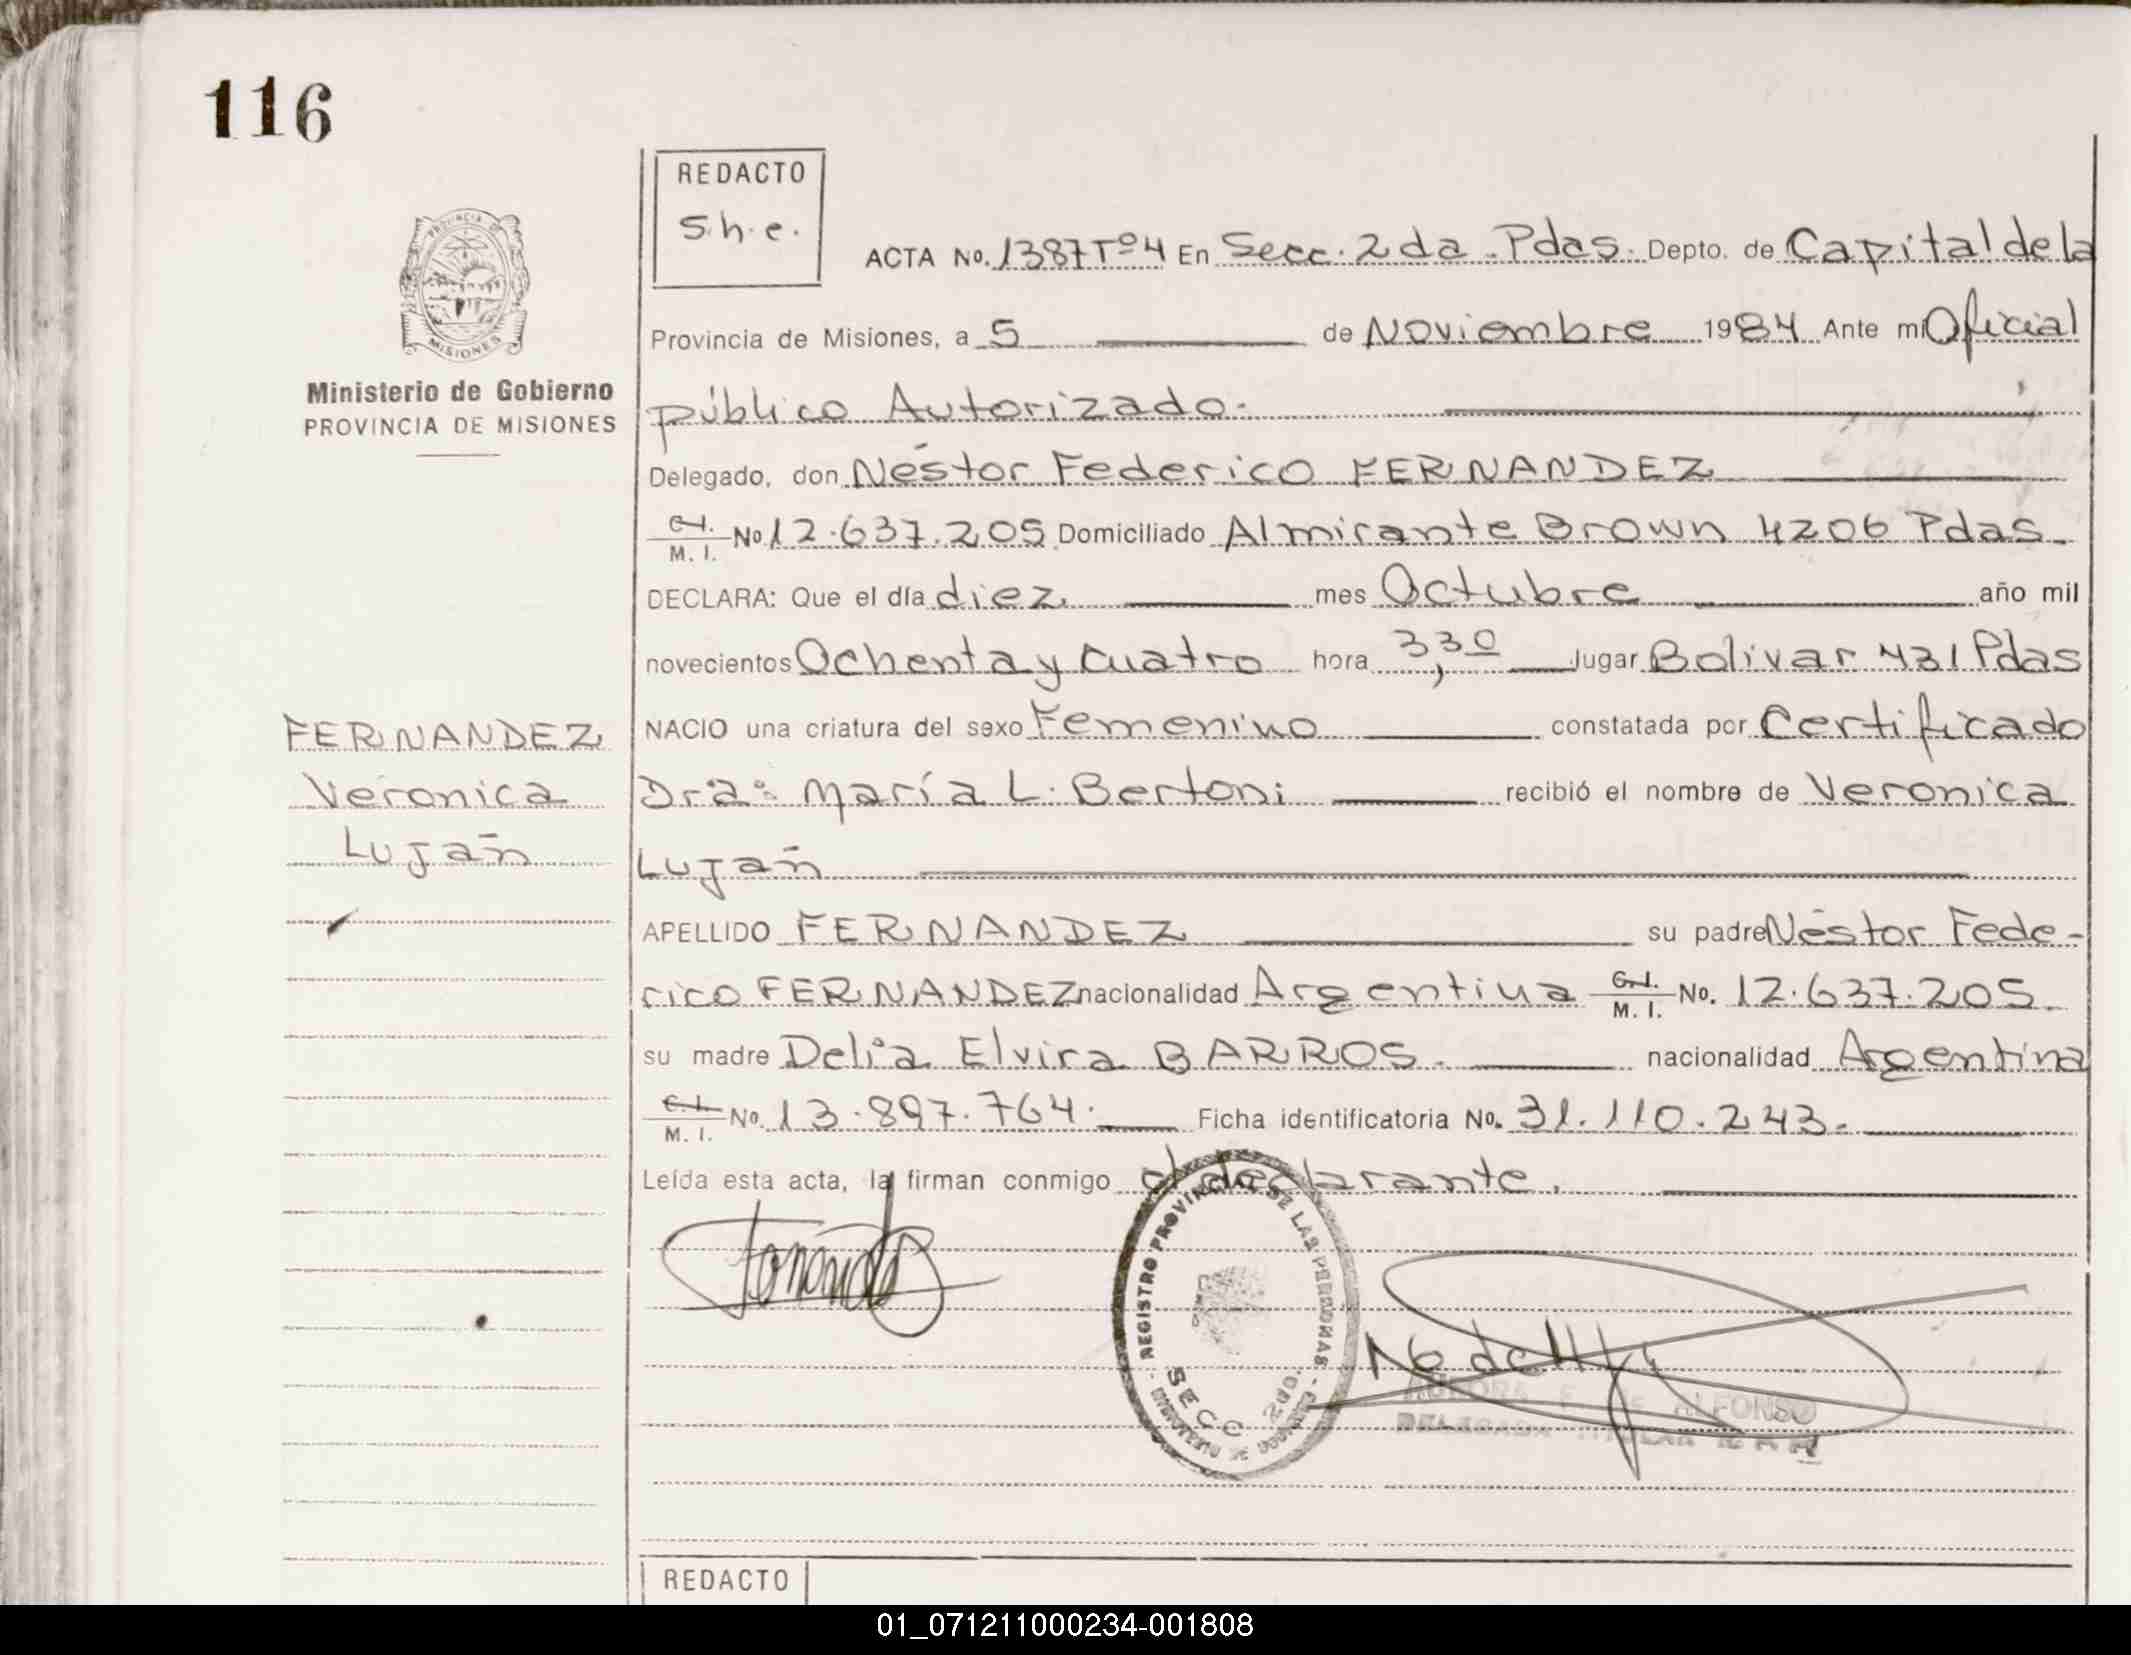 116
REDACTO
S.h.e.
ACTA No. 1387 Tº 4 En Secc. 2da. Pdas. Depto. de Capital de la
Provincia de Misiones, a 5 de Noviembre 1984 Ante mi Oficial
público Autorizado.
PROVINCIA DE
MISIONES
Ministerio de Gobierno
PROVINCIA DE MISIONES
Delegado, don Néstor Federico FERNANDEZ
C.I.
M. I. No 12.637.205 Domiciliado Almirante Brown 4206 Pdas.
DECLARA: Que el día diez mes Octubre año mil
novecientos Ochenta y cuatro hora 3,30 lugar Bolivar 431 Pdas
NACIO una criatura del sexo Femenino constatada por Certificado
Dra. María L. Bertoni recibió el nombre de Veronica
Luján
FERNANDEZ
Veronica
Luján
APELLIDO FERNANDEZ su padre Néstor Fede-
rico FERNANDEZ nacionalidad Argentina C.I.
M. I. No. 12.637.205.
su madre Delia Elvira BARROS. nacionalidad Argentina
C.I.
M. I. No. 13.897.764. Ficha identificatoria No. 31.110.243.
Leída esta acta, la firman conmigo el declarante.
REGISTRO PROVINCIAL DE LAS PERSONAS
SECC 2DA.
AURORA F. DE ALFONSO
DELEGADA TITULAR
REDACTO
01_071211000234-001808